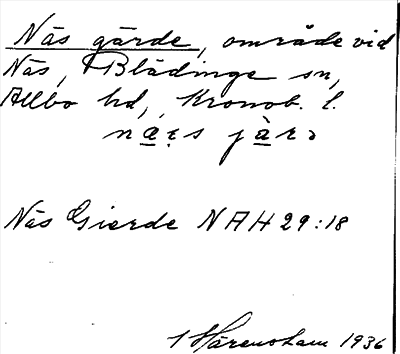 Näs gärde, område vid
Näs, Blädinge sn,
Allbo hd, Kronob. l.
Näs Gierde NAH 29:18
1936